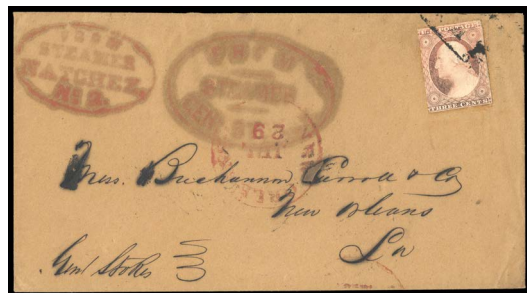 FROM
STEAMER
NATCHEZ,
No 2.
FROM
STEAMER
29
THREE CENTS
Mess. Buchannon Carroll & Co
New Orleans
La
Genl Stokes